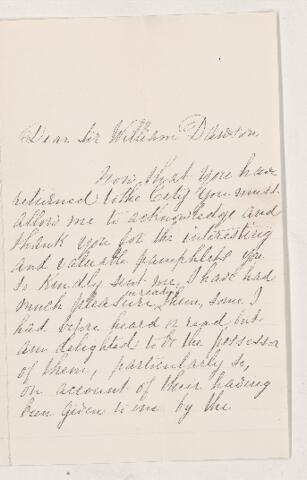 Dear Sir William Dawson
Now, that you have
returned to the City you must
allow me to acknowledge and
thank you for the interesting
and valuable pamphlets you
so kindly sent me, I have had
in reading
much pleasure them, some I
had before heard or read, but
am delighted to be the possessor
of them, particularly so,
on account of their having
been given to me by the